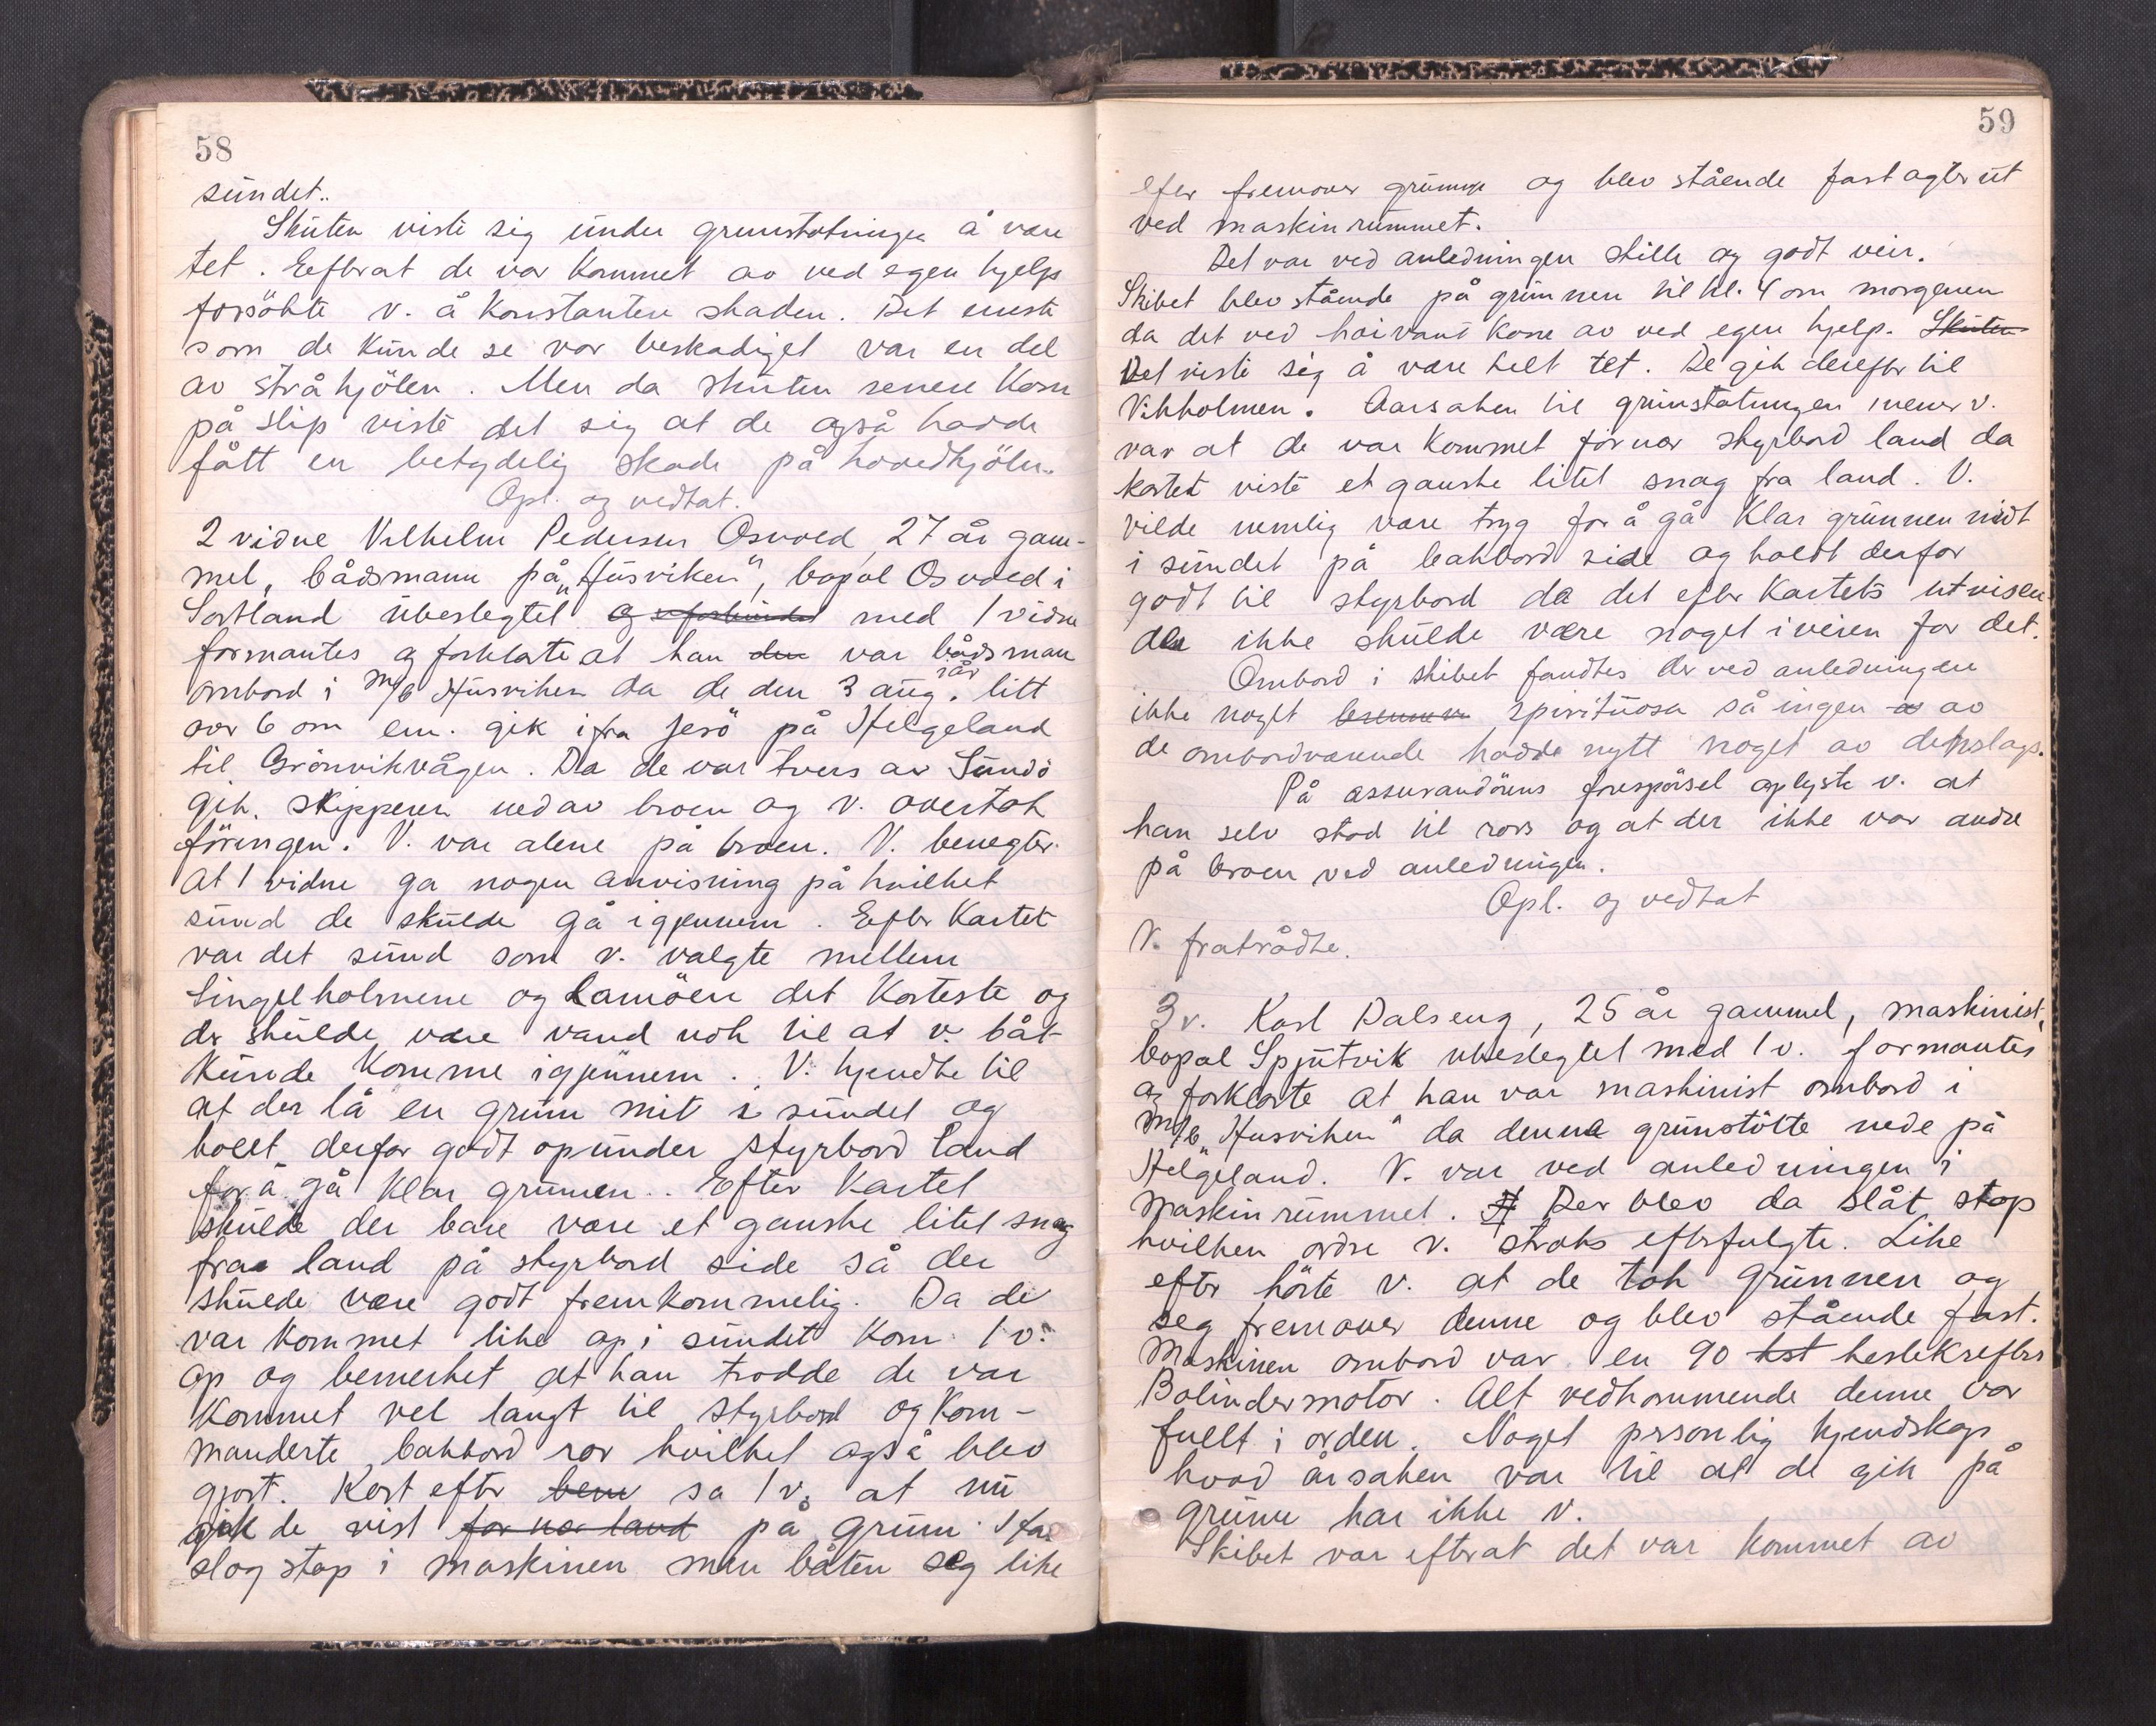 58
sundet.
Skuten viste sig under grunstøtningen å være
tet. Eefterat de var kommet av ved egen hjelp
forsökte v. å konstantere skaden. Det eneste
som de kunde se var beskadiget var en del
av stråkjölen. Men da skuten senere kom
på slip viste det sig at de også hadde
fått en betydelig skade på hovedkjölen.
Opl. og vedtat.
2 vidne Vilhelm Pedersen Osvold, 27 år gam-
mel, båsmann på „Husviken", bopæl Osvold i
Sortland ubeslegtet og uforbundet med 1 vidne
formantes og forklarte at han den var båsman
ombord i M/B Husviken da de den 3 aug. iår litt
over 6 om em. gik ifra Jesö på Helgeland
til Grönvikvågen. Da de var tvers av Sundö
gik skipperen ned av broen og v. overtok
föringen. V. var alene på broen. V. benegter
at 1 vidne ga nogen anvisning på hvilket
sund de skulde gå igjennem. Efter Kartet
var det sund som v. valgte mellem
Lingelholmene og Lamöen det korteste og
der skulde være vand nok til at v. båt
kunde komme igjennem. V. kjendte til
at der lå en grun mit i sundet og
holdt derfor godt opunder styrbord land
for å gå klar grunnen. Efter kartet
skulde der bare være et ganske litet snag
fra land på styrbord side så der
skulde være godt fremkommelig. Da de
var kommet like op i sundet kom 1 v.
op og bemerket at han trodde de var
kommet vel langt til styrbord og kom-
manderte bakbord ror hvilket også blev
gjort. Kort efter bem sa 1 v. at nu
gik de vist for nær land på grun. Han
slog stop i maskinen men båten seg like
59
efter fremover grunne og blev stående fast agterut
ved maskinrummet.
Det var ved anledningen stille og godt veir.
Skibet blev stående på grunnen til kl. 4 om morgenen
da det ved høivand kom av ved egen hjelp. Skuten
Det viste sig å være helt tet. De gik derefter til
Vikholmen. Aarsaken til grunstøtningen mener v.
var at de var kommet for nær styrbord land da
kartet viste et ganske litet snag fra land. V.
vilde nemlig være tryg for å gå klar grunnen midt
i sundet på bakbord side og holdt derfor
godt til styrbord da det efter kartets utvisen-
de ikke skulde være noget i veien for det.
Ombord i skibet fandtes der ved anledningen
ikke noget spirituosa så ingen av
de ombordværende hadde nytt noget av denslags.
På assurandörens forespörsel oplyste v. at
han selv stod til rors og at der ikke var andre
på broen ved anledningen.
Opl. og vedtat
V. fratrådte.
3 v. Karl Dalseng, 25 år gammel, maskinist,
bopæl Spjutvik ubeslegtet med 1 v. formantes
og forklarte at han var maskinist ombord i
M/B „Husviken" da denne grunstötte nede på
Helgeland. V. var ved anledningen i
maskinrummet. Der blev da slåt stop
hvilken ordre v. straks efterfulgte. Like
efter hörte v. at de tok grunnen og
seg fremover denne og blev stående fast.
Maskinen ombord var en 90 hst hestekrefters
Bolindermotor. Alt vedkommende denne var
fullt i orden. Noget personlig kjendskap
hvad årsaken var til at de gik på
grunne har ikke v.
Skibet var efterat det var kommet av